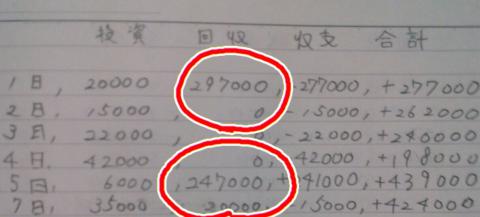 投資 回収 収支 合計
1日, 20000 297000, -277000, +277000
2日, 15000 0 -15000, +262000
3日, 22000 0, -22000, +240000
4日, 42000 0, 42000, +198000
5日, 6000, 247000, +41000, +439000
7日, 35000 20000 -15000, +424000